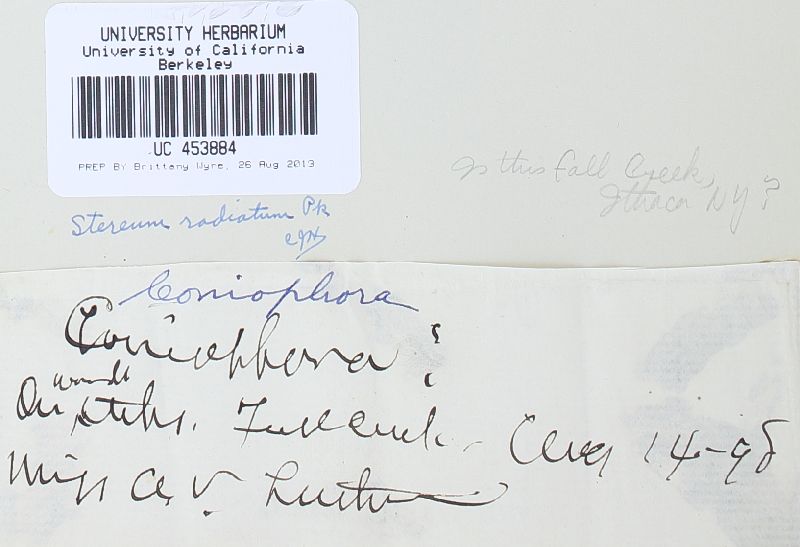 UNIVERSITY HERBARIUM
University of California
Berkeley
UC 453884
PREP BY Brittany Wyre, 26 Aug 2013
Is this Fall Creek,
Ithaca NY?
Stereum radiatum Pk
Coniophora
Coniophora ?
On sticks. Fall Creek - Aug 14-98
Miss A. V.